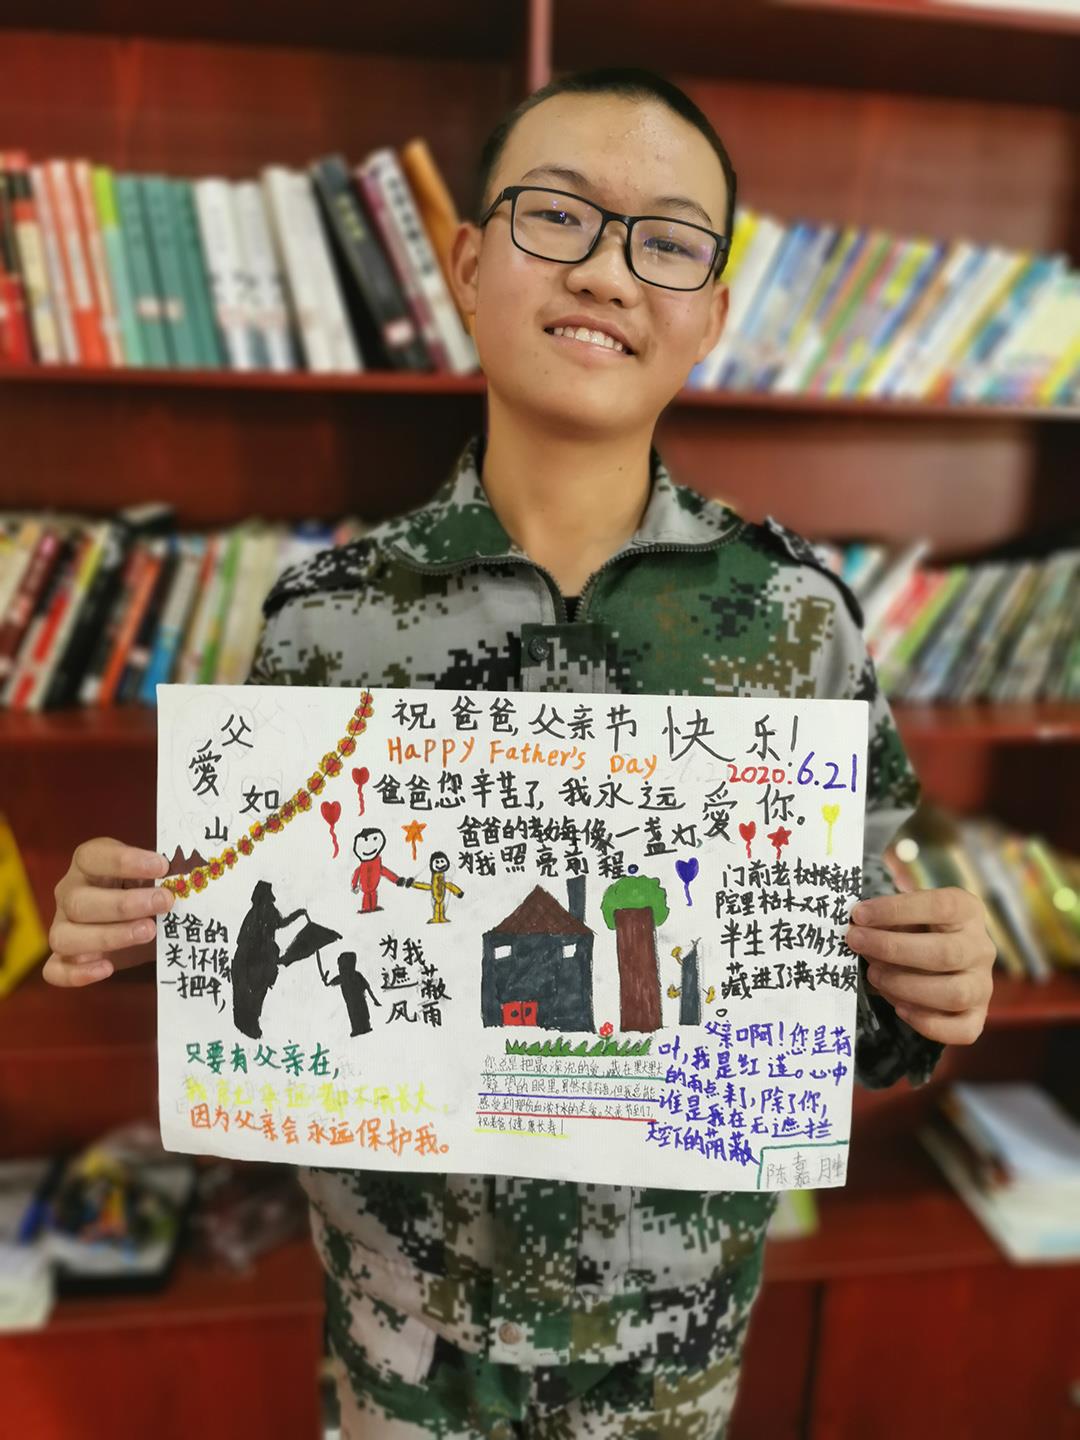 父
愛
如
山
祝爸爸,父亲节快乐!
Happy Father's Day
2020.6.21
爸爸您辛苦了,我永远愛你。
爸爸的教诲像一盏灯,
为我照亮前程。
爸爸的
关怀像
一把伞,
为我
遮蔽
风雨
门前老树长新芽
院里枯木又开花
半生存了多少话
藏进了满头白发
。
只要有父亲在,
我就永远都不用长大,
因为父亲会永远保护我。
你总是把最深沉的爱,藏在默默
凝望的眼里。虽然不言不语,但我总能
感受到那份血浓于水的关爱。父亲节到了,
祝老爸健康长寿!
父亲啊!您是荷
叶,我是红莲。心中
的雨点来了,除了你,
谁是我在无遮拦
天空下的荫蔽
陈嘉胜